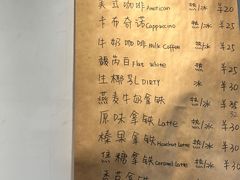 美式咖啡 American 热/冰 ¥20
卡布奇诺 Cappuccino 热/冰 ¥25
牛奶咖啡 Milk Coffee 热/冰 ¥25
馥芮白 Flat white 热 ¥30
生椰乳 DIRTY 冰 ¥30
燕麦牛奶拿铁 热/冰 ¥35
32
原味拿铁 Latte 热/冰 ¥30
榛果拿铁 Hazelnut Latte 热/冰 ¥30
焦糖拿铁 Caramel Latte 热 ¥30
拿铁